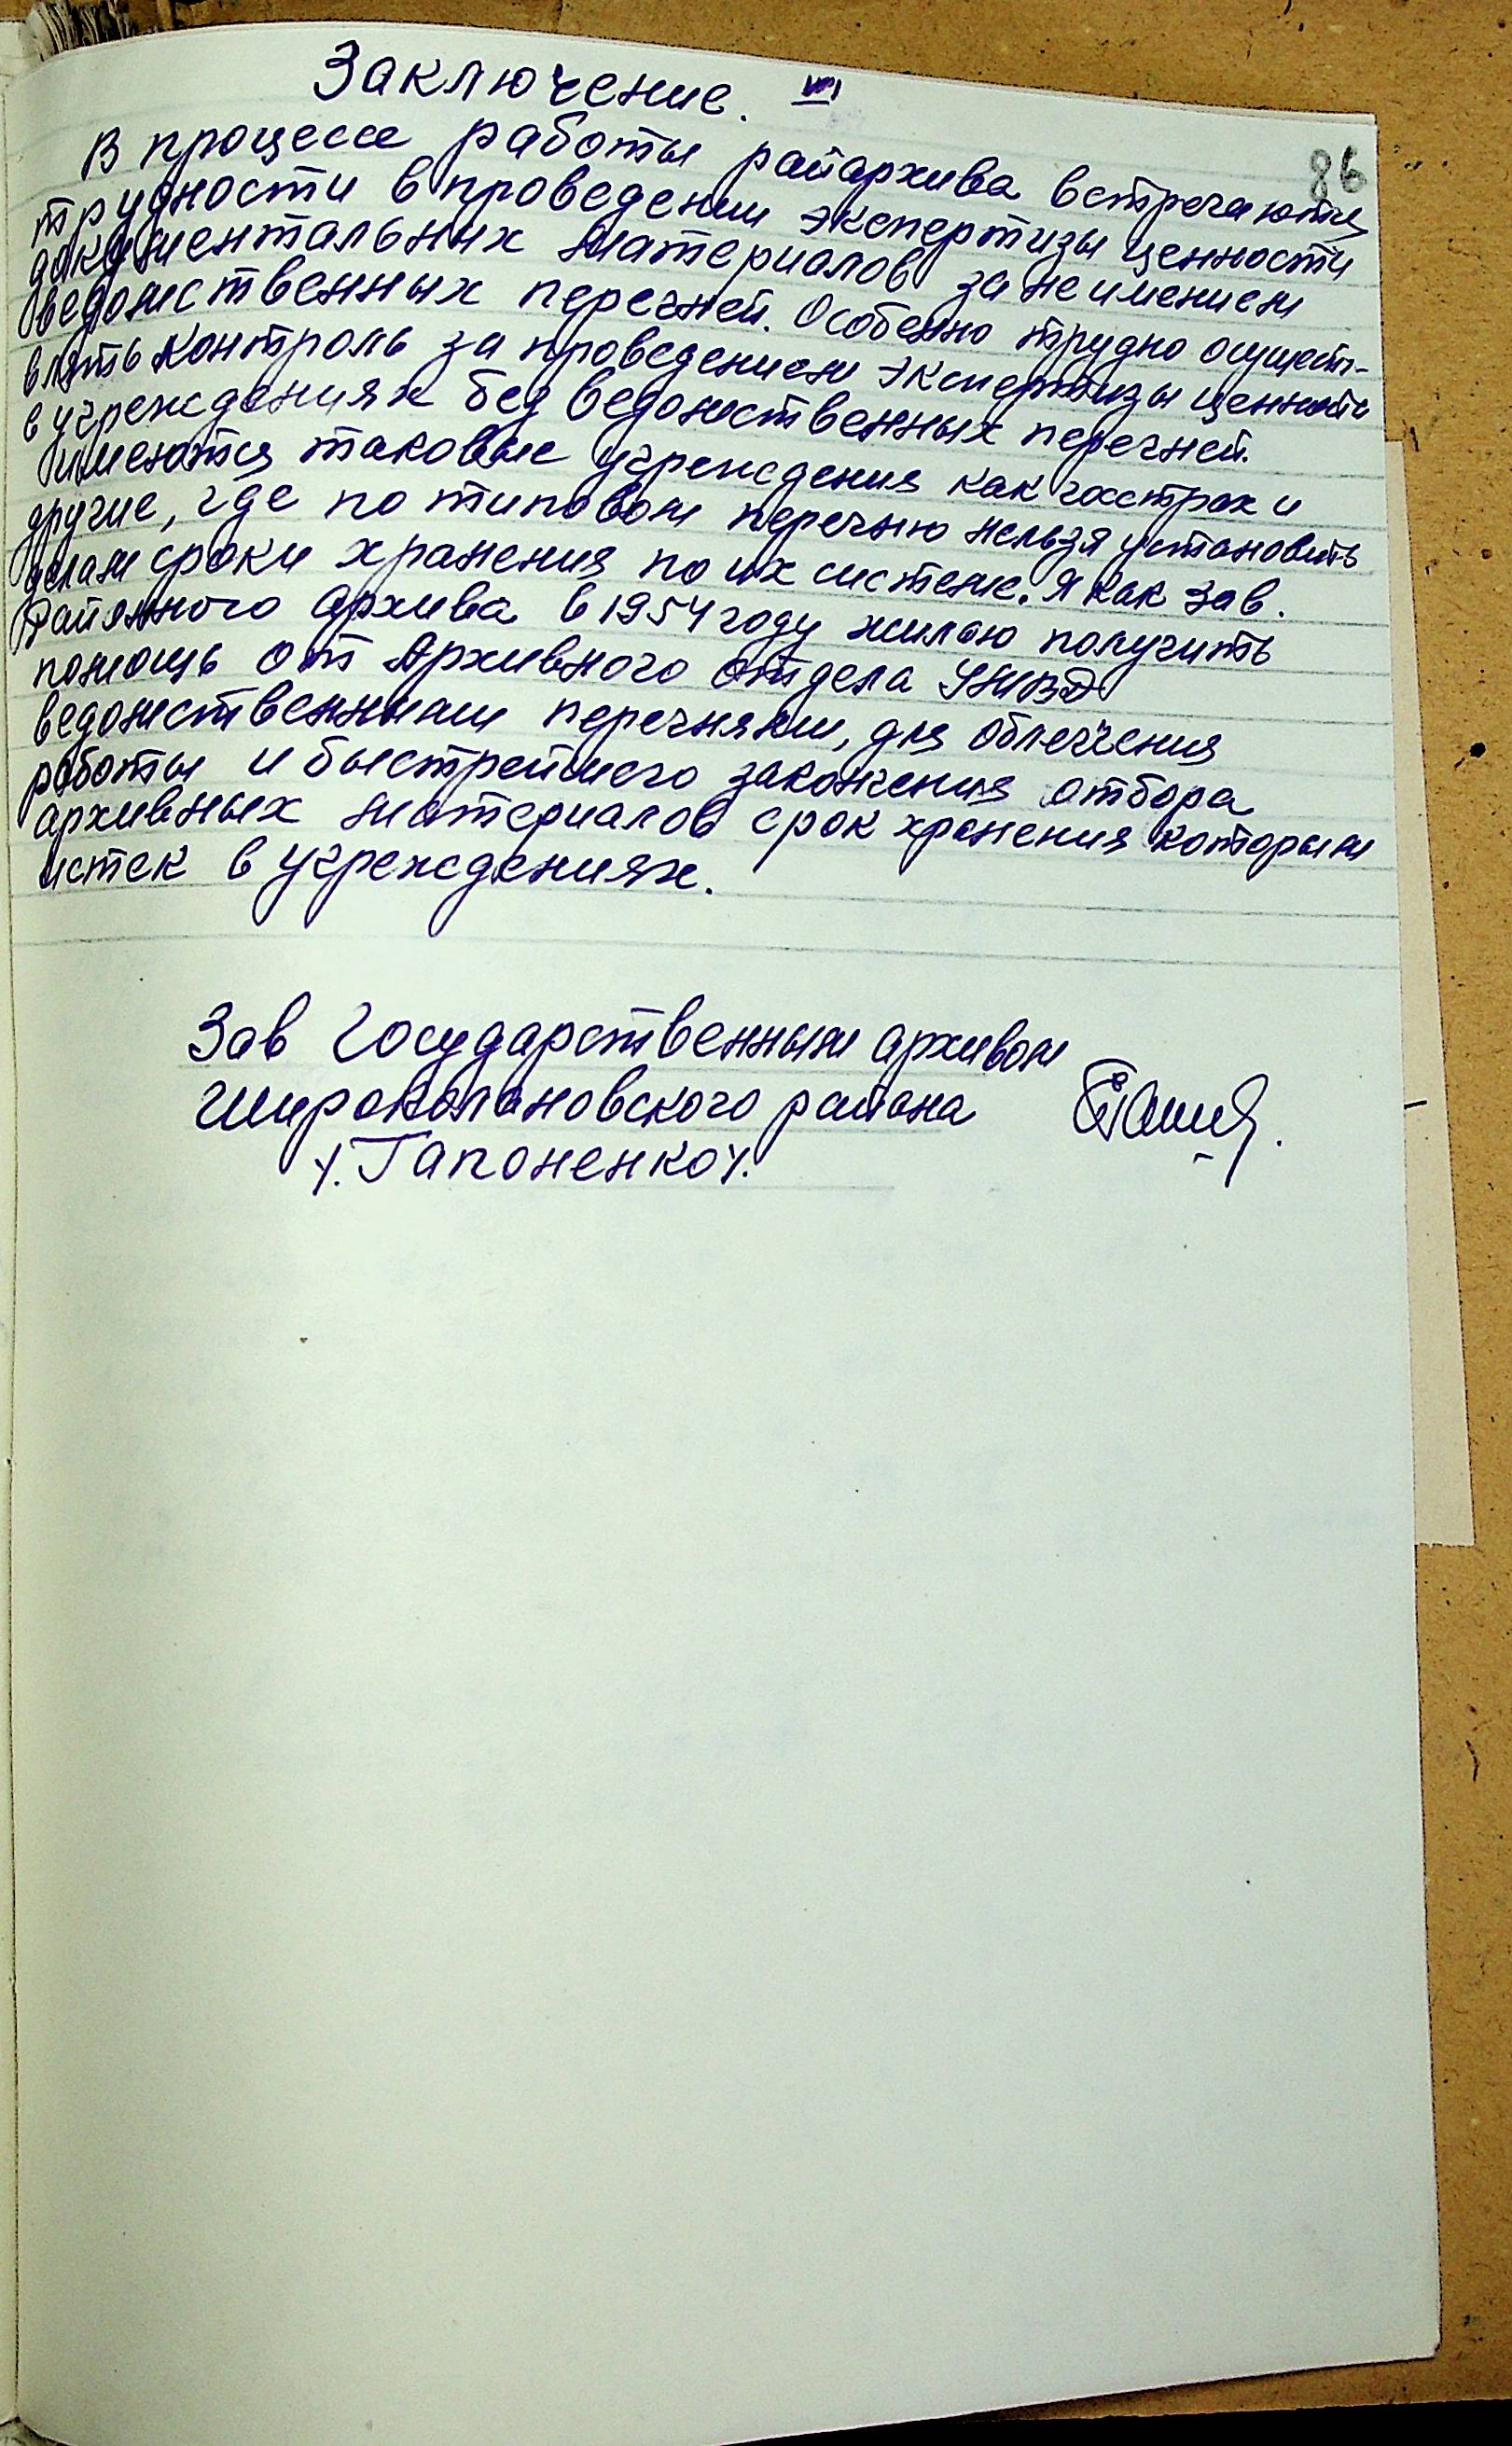 Заключение. VII
86
В процессе работы райархива встречаются
трудности в проведении экспертизы ценности
документальных материалов за неимением
ведомственных перечней. Особенно трудно осущест-
влять контроль за проведением экспертизы ценности
в учреждениях без ведомственных перечней.
имеются таковые учреждения как госстрах и
другие, где по типовом перечню нельзя установить
делам сроки хранения по их системе. Я как зав.
Районного архива в 1954 году жилаю получить
помощь от Архивного отдела УМВД
ведомственными перечнями, для облегчения
работы и быстрейшего закончения отбора
архивных материалов срок хранения которым
истек в учреждениях.
Зав Государственным архивом
Широколановского района
/. Гапоненко /.